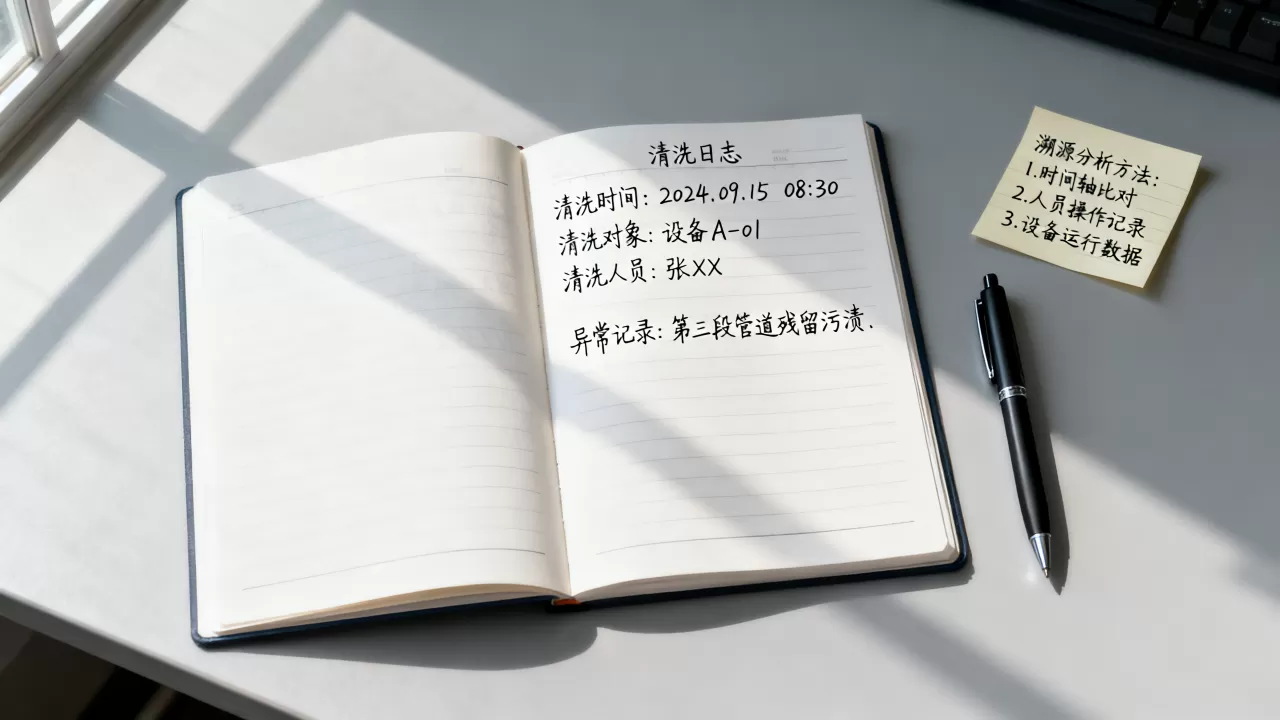 清洗日志
清洗时间: 2024.09.15 08:30
清洗对象: 设备A-01
清洗人员: 张XX
异常记录: 第三段管道残留污渍.
溯源分析方法:
1.时间轴比对
2.人员操作记录
3.设备运行数据